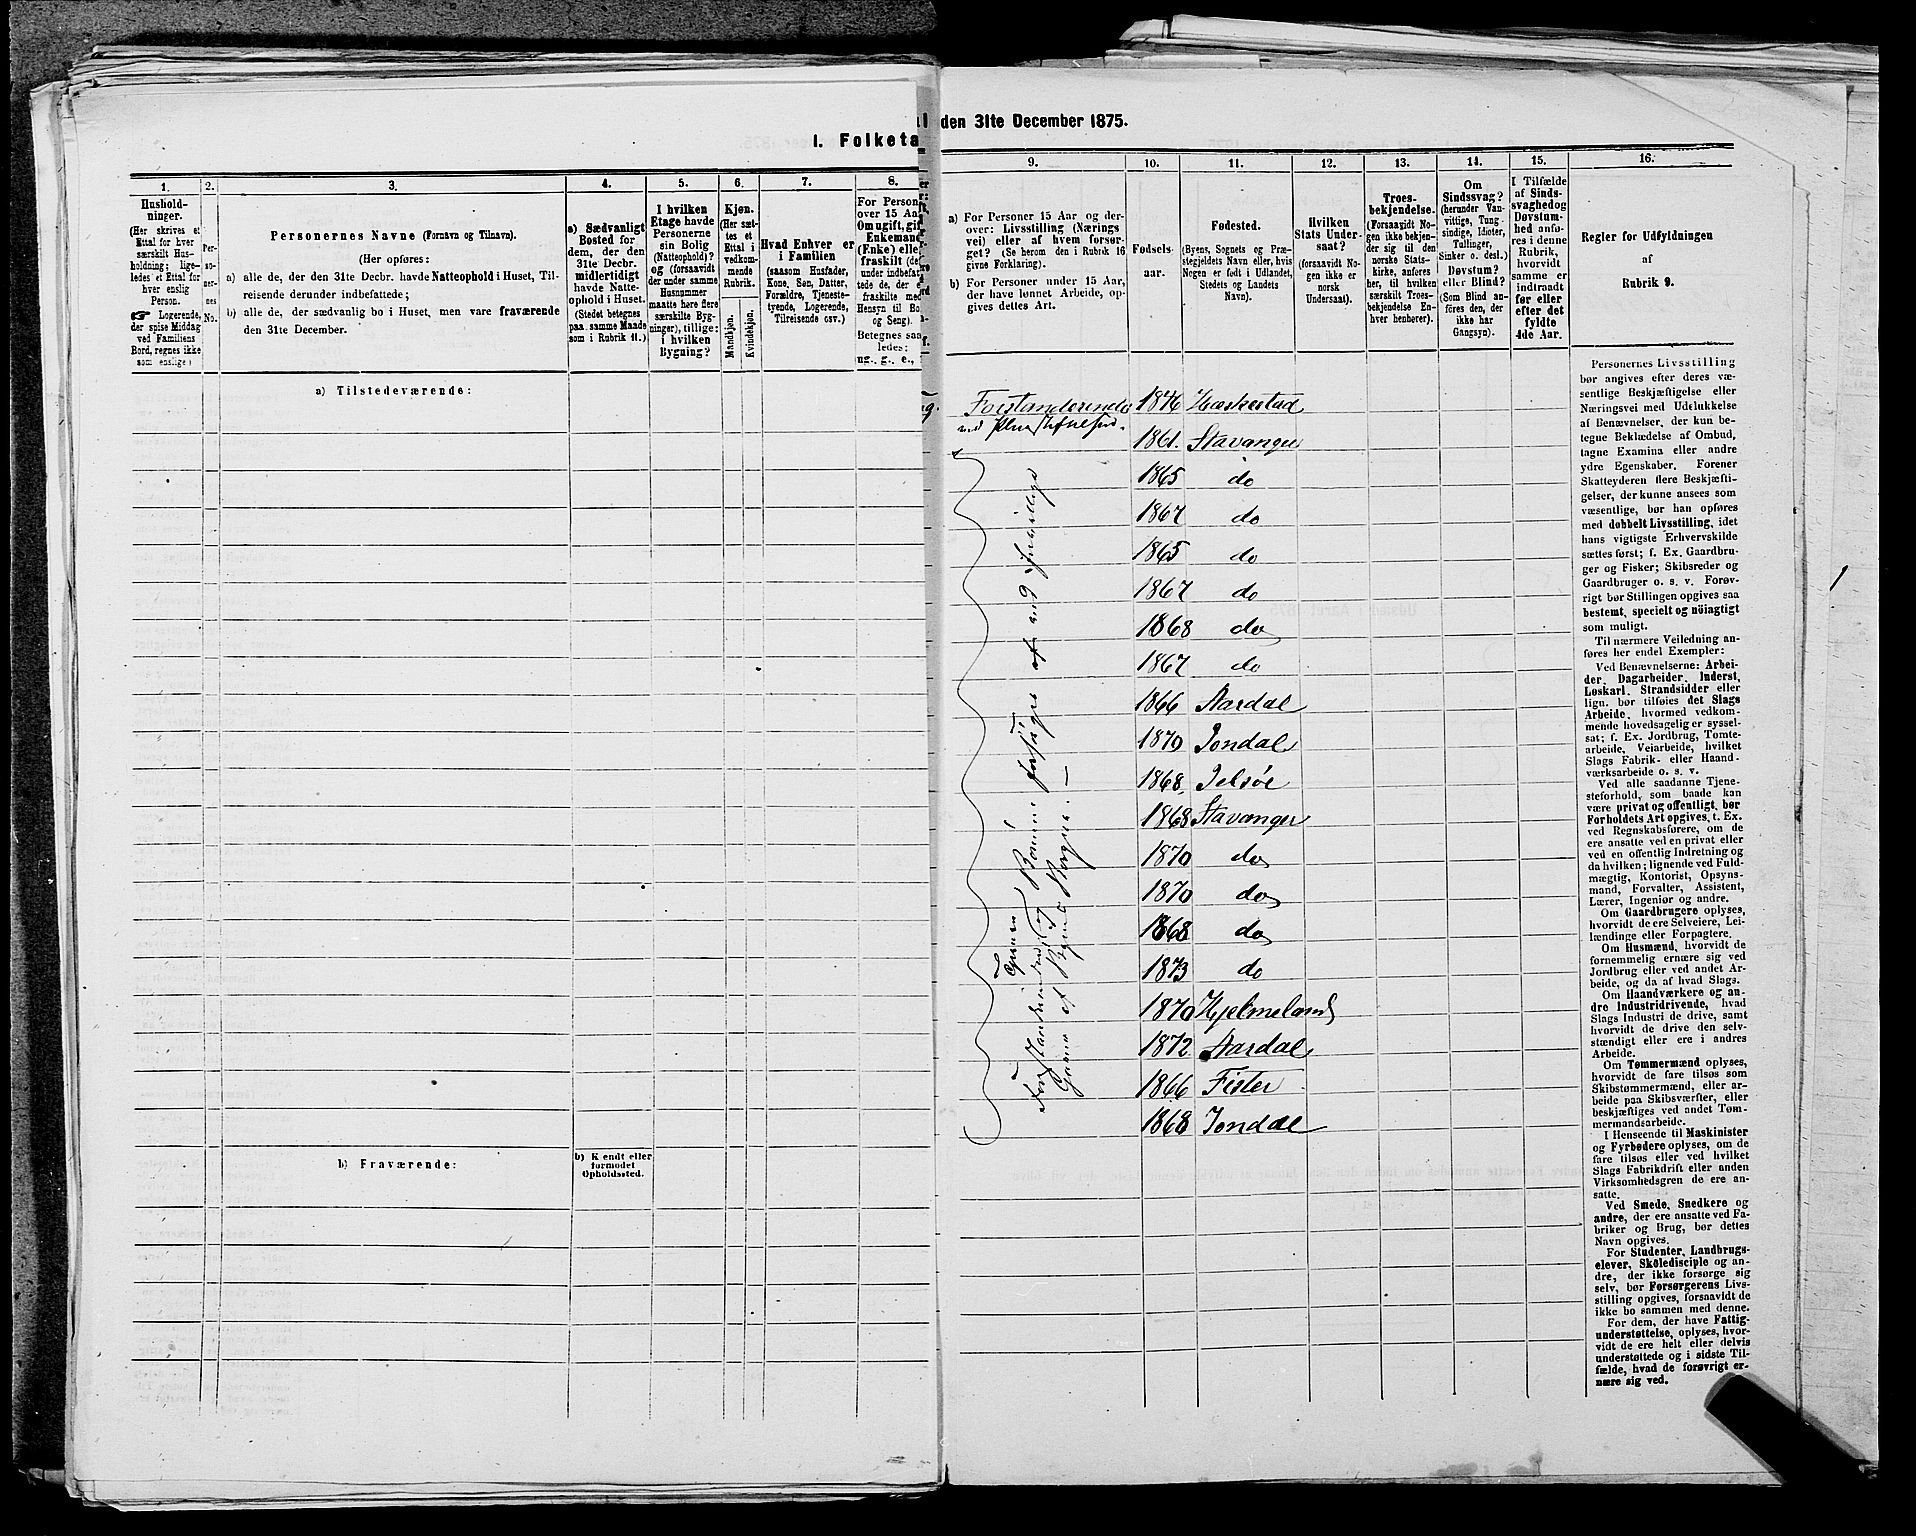 I. Folketa
1.
2.
3.
4.
5.
6.
7.
8.
Hushold-
ninger.
(Her skrives et
Ettal for hver
særskilt Hus-
holdning; lige-
ledes et Ettal for
hver enslig
Person.
☞ Logerende,
der spise Middag
ved Familiens
Bord, regnes ikke
som enslige)
Per-
so-
ner-
nes
No.
Personernes Navne (Fornavn og Tilnavn).
(Her opføres:
a) alle de, der den 31te Decbr. havde Natteophold i Huset, Til-
reisende derunder indbefattede;
b) alle de, der sædvanlig bo i Huset, men vare fraværende
den 31te December.
a) Sædvanligt
Bosted for
dem, der den
31te Decbr.
midlertidigt
havde Natte-
ophold i Huset.
(Stedet betegnes
paa samme Maade
som i Rubrik 11.)
I hvilken
Etage havde
Personerne
sin Bolig
(Natteophold)?
og (forsaavidt
der under samme
Husnummer
maatte høre flere
særskilte Byg-
ninger), tillige:
i hvilken
Bygning?
Kjøn.
(Her sæt-
tes et
Ettal i
vedkom-
mende
Rubrik.
Mandkjøn.
Kvindekjøn.
Hvad Enhver er
i Familien
(saasom Husfader,
Kone, Søn, Datter,
Forældre, Tjeneste-
tyende, Logerende,
Tilreisende osv.)
For Person
over 15 Aa
Om ugift, gif
Enkemand
(Enke) elle
fraskilt (de
under indbefat
tede de, der e
fraskilte med
Hensyn til Bo
og Seng).
Betegnes saa
ledes:
ug., g., e.,
a) Tilstedeværende:
b) Fraværende:
b) Kjendt eller
formodet
Opholdssted.
den 31te December 1875.
9.
10.
11.
12.
13.
14.
15.
16.
a) For Personer 15 Aar og der-
over: Livsstilling (Nærings
vei) eller af hvem forsør-
get? (Se herom den i Rubrik 16
givne Forklaring).
b) For Personer under 15 Aar,
der have lønnet Arbeide, op-
gives dettes Art.
Fødsels-
aar.
Fødested.
(Byens, Sognets og Præ-
stegjeldets Navn eller, hvis
Nogen er født i Udlandet,
Stedets og Landets
Navn).
Hvilken
Stats Under-
saat?
(forsaavidt No-
gen ikke er
norsk
Undersaat).
Troes-
bekjendelse.
(Forsaavidt No-
gen ikke bekjen-
der sig til den
norske Stats-
kirke, anføres
her, til hvilken
særskilt Troes-
bekjendelse En-
hver henhører).
Om
Sindssvag?
(herunder Van-
vittige, Tung-
sindige, Idioter,
Tullinger,
Sinker o. desl.)
Døvstum?
eller Blind?
(Som Blind an-
føres den, der
ikke har
Gangsyn).
I Tilfælde
af Sinds-
svaghed og
Døvstum-
hed anfø-
res i denne
Rubrik,
hvorvidt
samme er
indtraadt
før eller
efter det
fyldte
4de Aar.
Regler for Udfyldningen
af
Rubrik 9.
Forstanderinde 1846
1861. Stavanger
1865 do
1867 do
1865 do
1867 do
1868 do
1867 do
1866 Aardal
1870 Jondal
1868 Jelsøe
1868 Stavanger
1870 do
1870 do
1868 do
1873 do
1870 Hjelmeland
1872 Aardal
1866 Fister
1868 Jondal
Forstanderinde og Børnene forsørges af
Personernes Livsstilling
bør angives efter deres væ-
sentlige Beskjæftigelse eller
Næringsvei med Udelukkelse
af Benævnelser, der kun be-
tegne Beklædelse af Ombud,
tagne Examina eller andre
ydre Egenskaber. Forener
Skatteyderen flere Beskjæfti-
gelser, der kunne ansees som
væsentlige, bør han opføres
med dobbelt Livsstilling, idet
hans vigtigste Erhvervskilde
sættes først; f. Ex. Gaardbru-
ger og Fisker; Skibsreder og
Gaardbruger o. s. v. Forøv-
rigt bør Stillingen opgives saa
bestemt, specielt og nöiagtigt
som muligt.
Til nærmere Veiledning an-
føres her endel Exempler:
Ved Benævnelserne: Arbei-
der, Dagarbeider, Inderst,
Løskarl, Strandsidder eller
lign. bør tilføies det Slags
Arbeide, hvormed vedkom-
mende hovedsagelig er syssel-
sat; f. Ex. Jordbrug, Tomte-
arbeide, Veiarbeide, hvilket
Slags Fabrik- eller Haand-
værksarbeide o. s. v.
Ved alle saadanne Tjene-
steforhold, som baade kan
være privat og offentligt, bør
Forholdets Art opgives, t. Ex.
ved Regnskabsførere, om de
ere ansatte ved en privat eller
ved en offentlig Indretning og
da hvilken; lignende ved Fuld-
mægtig, Kontorist, Opsyns-
mand, Forvalter, Assistent,
Lærer, Ingeniør og andre.
Om Gaardbrugere oplyses,
hvorvidt de ere Selveiere, Lei-
lændinge eller Forpagtere.
Om Husmænd, hvorvidt de
fornemmelig ernære sig ved
Jordbrug eller ved andet Ar-
beide, og da af hvad Slags.
Om Haandværkere og an-
dre Industridrivende, hvad
Slags Industri de drive, samt
hvorvidt de drive den selv-
stændigt eller ere i andres
Arbeide.
Om Tømmermænd oplyses,
hvorvidt de fare tilsøs som
Skibstømmermænd, eller ar-
beide paa Skibsværfter, eller
beskjæftiges ved andet Tøm-
mermandsarbeide.
I Henseende til Maskinister
og Fyrbødere oplyses, om de
fare tilsøs eller ved hvilket
Slags Fabrikdrift eller anden
Virksomhedsgren de ere an-
satte.
Ved Smede, Snedkere og
andre, der ere ansatte ved Fa-
briker og Brug, bør dettes
Navn opgives.
For Studenter, Landbrugs-
elever, Skoledisciple og an-
dre, der ikke forsørge sig
selv, bør Forsørgerens Livs-
stilling opgives, forsaavidt de
ikke bo sammen med denne.
For dem, der have Fattig-
understøttelse, oplyses, hvor-
vidt de ere helt eller delvis
understøttede og i sidste Til-
fælde, hvad de forøvrigt er-
nære sig ved.